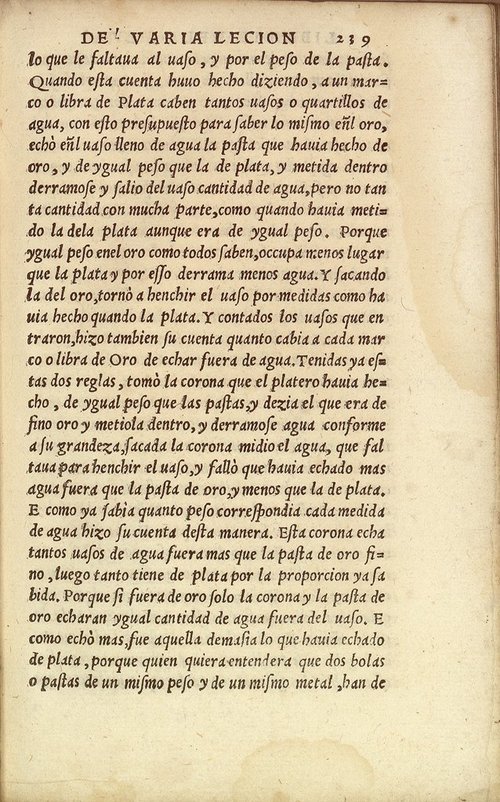 DEˡ VARIA LECION 239
lo que le faltaua al uaſo, y por el peſo de la paſta.
Quando eſta cuenta huuo hecho diziendo, a un mar=
co o libra de Plata caben tantos uaſos o quartillos de
agua, con eſto preſupueſto para ſaber lo miſmo eñl oro,
echò eñl uaſo lleno de agua la paſta que hauia hecho de
oro, y de ygual peſo que la de plata, y metida dentro
derramoſe y ſalio del uaſo cantidad de agua, pero no tan
ta cantidad con mucha parte, como quando hauia meti=
do la dela plata aunque era de ygual peſo. Porque
ygual peſo enel oro como todos ſaben, occupa menos lugar
que la plata y por eſſo derrama menos agua. Y ſacando
la del oro, tornò a henchir el uaſo por medidas como ha
uia hecho quando la plata. Y contados los uaſos que en
traron, hizo tambien ſu cuenta quanto cabia a cada mar
co o libra de Oro de echar fuera de agua. Tenidas ya eſ=
tas dos reglas, tomò la corona que el platero hauia he=
cho, de ygual peſo que las paſtas, y dezia el que era de
fino oro y metiola dentro, y derramoſe agua conforme
a ſu grandeza, ſacada la corona midio el agua, que fal
taua para henchir el uaſo, y fallò que hauia echado mas
agua fuera que la paſta de oro, y menos que la de plata.
E como ya ſabia quanto peſo correſpondia cada medida
de agua hizo ſu cuenta deſta manera. Eſta corona echa
tantos uaſos de agua fuera mas que la paſta de oro fi=
no, luego tanto tiene de plata por la proporcion ya ſa
bida. Porque ſi fuera de oro ſolo la corona y la paſta de
oro echaran ygual cantidad de agua fuera del uaſo. E
como echò mas, fue aquella demaſia lo que hauia echado
de plata, porque quien quiera entendera que dos bolas
o paſtas de un miſmo peſo y de un miſmo metal, han de